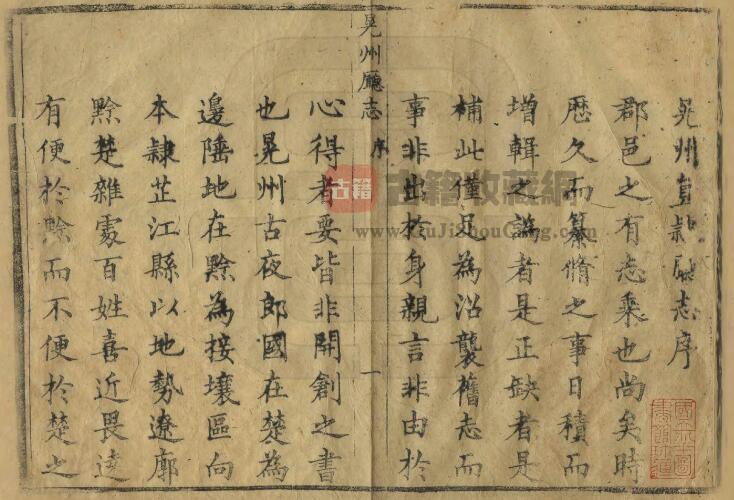 晃州直隸廳志序
郡邑之有志乘也尚矣時
歷久而纂脩之事日積而
增輯之譌者是正缺者是
補此僅足為沿襲舊志而
事非出於身親言非由於
晃州廳志 序 一
心得者要皆非開創之書
也晃州古夜郎國在楚為
邊陲地在黔為接壤區向
本隸芷江縣以地勢遼廓
黔楚雜處百姓喜近畏遠
有便於黔而不便於楚之
古籍 古籍收藏網
www.GuJiShouCang.com